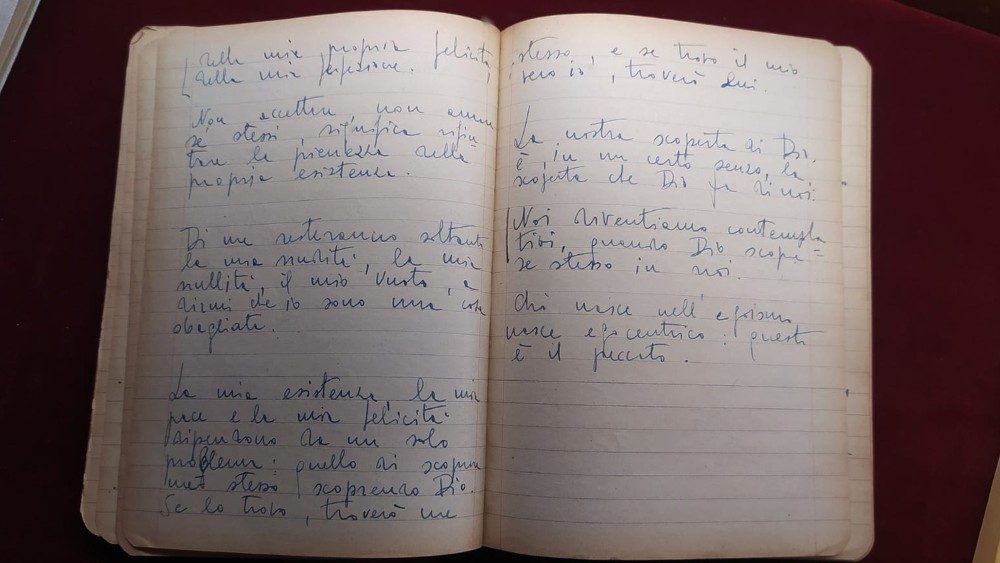 della mia propria felicità,
della mia perfezione.
Non accettare, non amare
se stessi, significa rifiu-
tare la pienezza della
propria esistenza.
Di me resteranno soltanto
la mia nudità, la mia
nullità, il mio vuoto, a
dirmi che io sono una cosa
sbagliata.
La mia esistenza, la mia
pace e la mia felicità
dipendono da un solo
problema: quello di scoprire
me stesso scoprendo Dio.
Se lo trovo, troverò me
stesso, e se trovo il mio
vero io, troverò Lui.
La nostra scoperta di Dio
è, in un certo senso, la
scoperta che Dio fa di noi.
Noi diventiamo contempla
tivi, quando Dio scopre
se stesso in noi.
Chi nasce nell'egoismo
nasce egocentrico: questo
è il peccato.